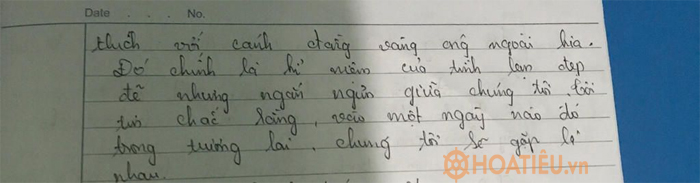 Date No.
thích với cảnh trăng sáng ong ngoài kia.
Đó chính là kỉ niệm của tình bạn đẹp
đẽ nhưng ngắn ngủi giữa chúng tôi, tôi
tin chắc rằng, vào một ngày nào đó
trong tương lai, chúng tôi sẽ gặp lại
nhau.
HOATIÊU.vn